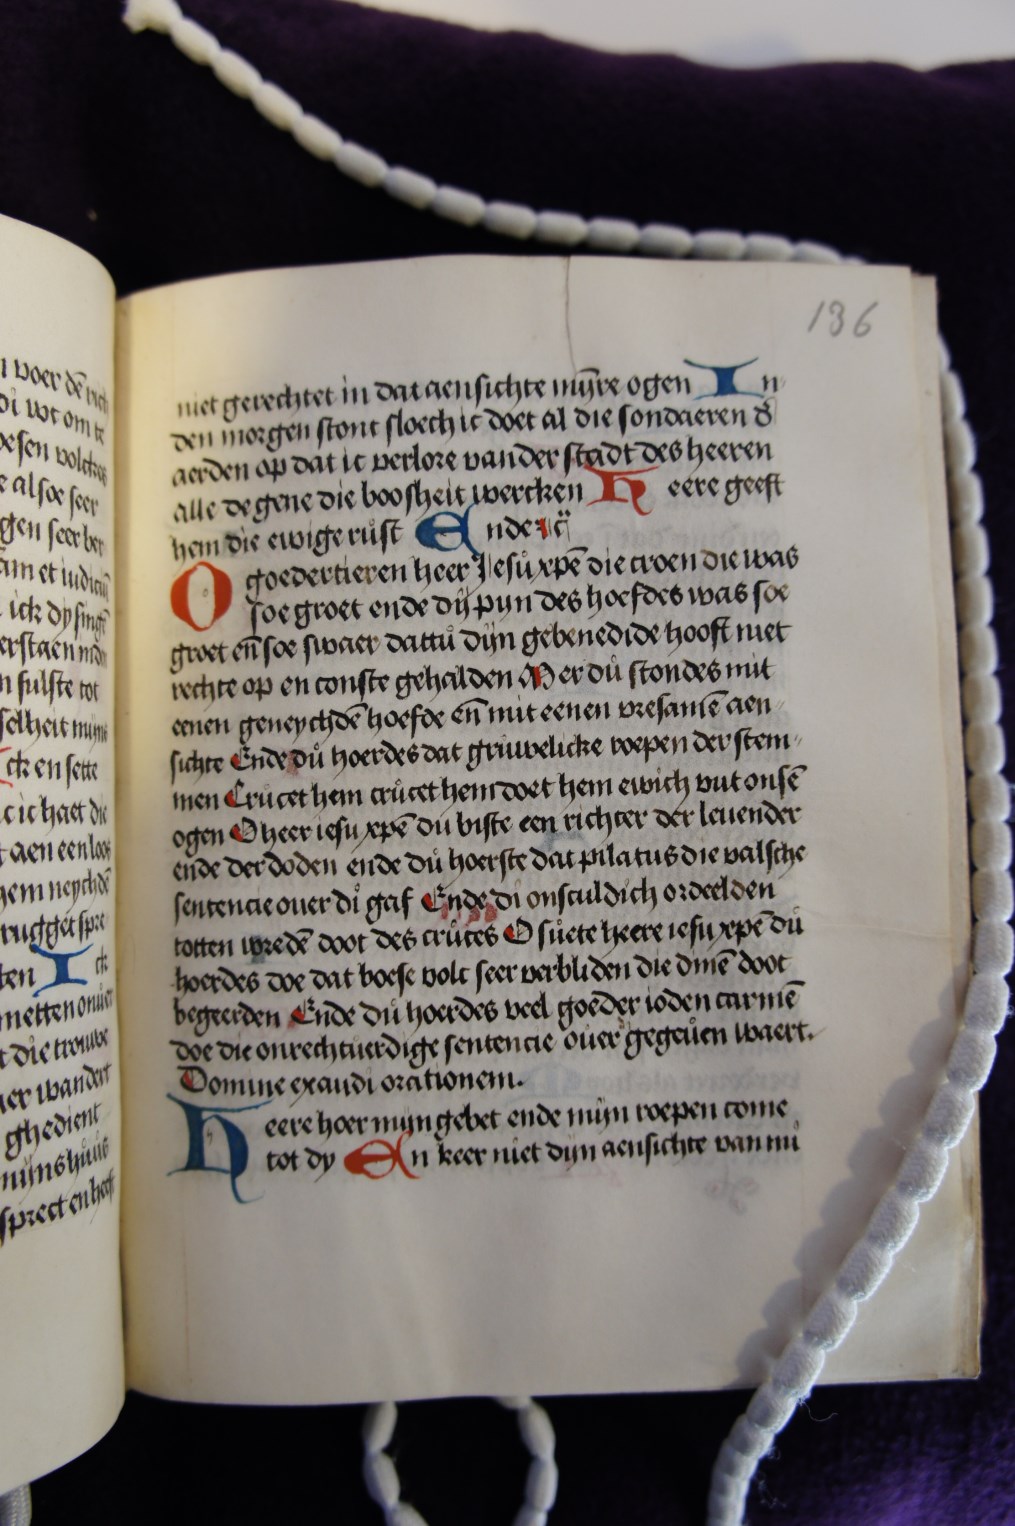 voer dē
di wt om te
oesen volckes
alsoe seer
gen seer ber
am et iudiciū
ick dy singē
erstaen
n fulste tot
selheit mijns
ck en sette
ic haet die
aen een loos
hem neychdē
rugget spre
ten Ick
metten onuer
t die trouwe
er wandert
ghedient
mijns huůs
sprect en heeft
136
niet gerechtet in dat aensichte mijre ogen In
den morgen stont sloech ic doet al die sondaeren d
aerden op dat ic verlore van der stadt des heeren
alle degene die boosheit wercken Heere geeft
hem die ewige růst Ende ic
O goedertieren heer Jesu xpē die croen die was
soe groet ende dij pijn des hoefdes was soe
groet eñ soe swaer dattů dijn gebenedide hooft niet
rechte op en conste gehalden Mer dů stondes mit
eenen geneychdē hoefde eñ mit eenen vresamē aen
sichte Ende dů hoerdes dat grůwelicke roepen der stem
men Crůcet hem crůcet hem doet hem ewich vut onsē
ogen O heer iesu xpē du biste een richter der leuender
ende der doden ende dů hoerste dat pilatus die valsche
sentencie ouer di gaf Ende di onsculdich ordeelden
totten wredē doot des crůces O sůete heere iesu xpē dů
hoerdes doe dat boese volc seer verbliden die dinē doot
begeerden Ende dů hoerdes veel goeder ioden carmē
doe die onrechtuerdige sentencie ouer gegeuen waert.
Domine exaudi orationem.
Heere hoer mijn gebet ende mijn roepen come
tot dy En keer niet dijn aensichte van mi